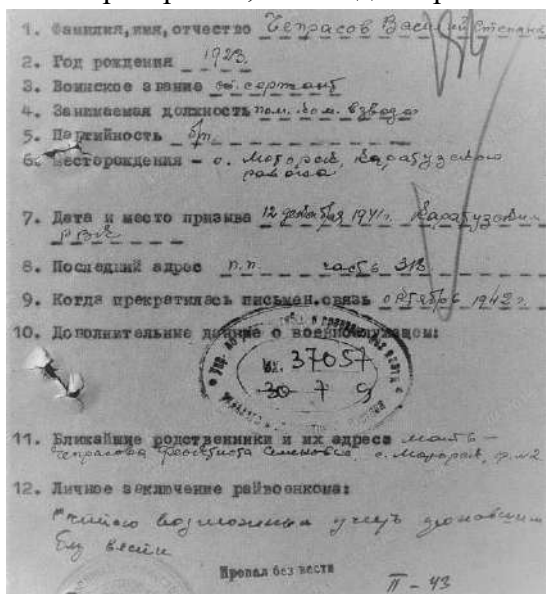 1. Фамилия, имя, отчество Чепрасов Василий Степан
2. Год рождения 1923.
3. Воинское звание ст. сержант
4. Занимаемая должность пом. ком. взвода
5. Партийность б/п.
6. Месторождения – с. Моторск, Каратузского
района
7. Дата и место призыва 12 декабря 1941г. Каратузским
РВК
8. Последний адрес п.п. часть 318
9. Когда прекратилась письмен. связь октябрь 1942г.
10. Дополнительные данные о военнослужащем:
вх. 37057
30 7 9
11. Ближайшие родственники и их адреса мать –
Чепрасова Феоктиста Семеновна, с.
12. Личное заключение райвоенкома:
считаю возможным учесть
без вести
Пропал без вести
II – 43